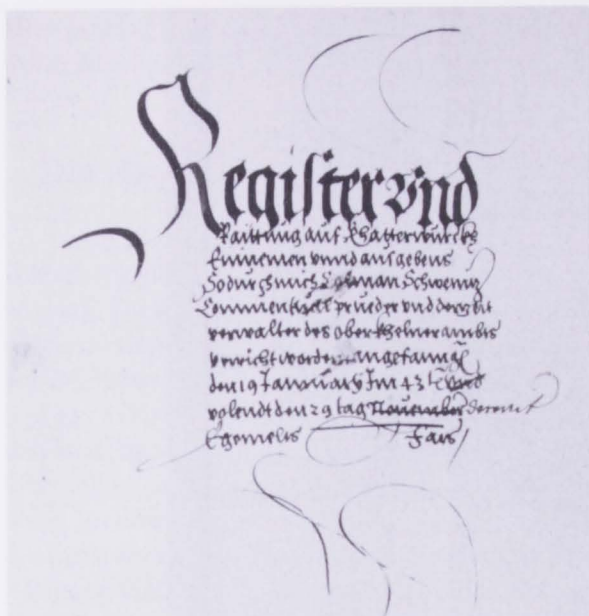 Register vnd
Raittung auf Khasten wurckh
Einnemen vnnd ausgebens
So durch mich Colman Schwennz
Conuentual prueder vnd der Zeit
verwalter des ober khelner ambts
verricht worden angefanngen
den 19 January Im 43ten vnd
volendt den 29 tag Nouember
Egemelts Jars